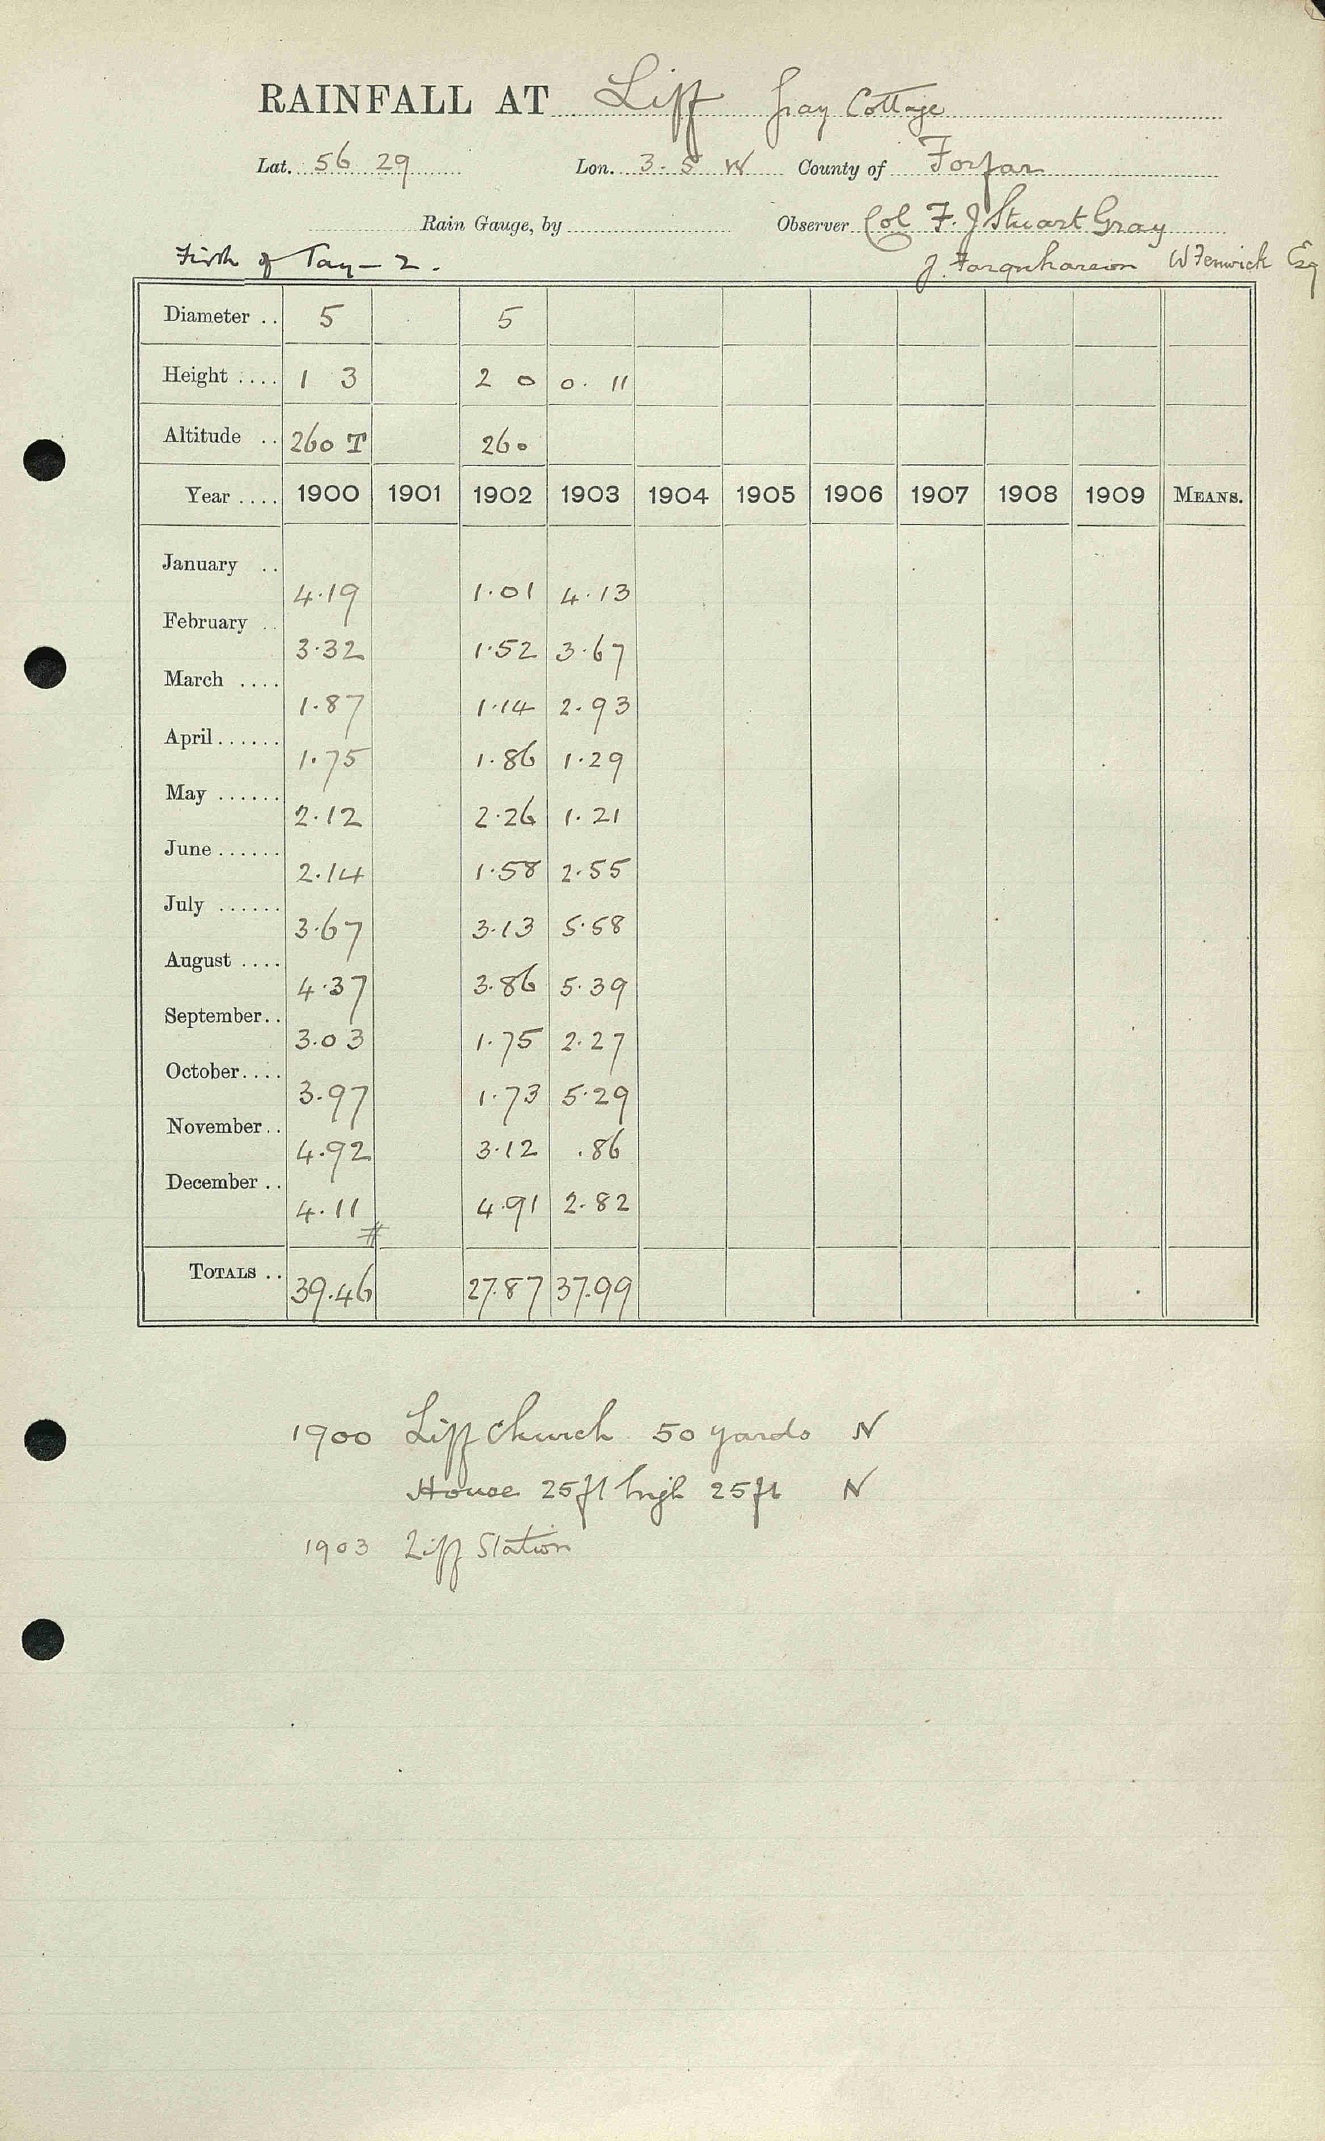 RAINFALL AT Liff Gray Cottage
Lat. 56 29 Lon. 3. 5 W County of Forfar
Rain Gauge, by Observer Col F. J Stuart Gray
Firth of Tay - 2. J. Farquharson W Fenwick Esq
Diameter .. 5 5
Height .... 1 3 2 0 0. 11
Altitude .. 260 T 260
Year .... 1900 1901 1902 1903 1904 1905 1906 1907 1908 1909 MEANS.
January .. 4.19 1.01 4.13
February .. 3.32 1.52 3.67
March .... 1.87 1.14 2.93
April ...... 1.75 1.86 1.29
May ...... 2.12 2.26 1.21
June ...... 2.14 1.58 2.55
July ...... 3.67 3.13 5.58
August .... 4.37 3.86 5.39
September .. 3.03 1.75 2.27
October .... 3.97 1.73 5.29
November .. 4.92 3.12 .86
December .. 4.11 4.91 2.82
#
TOTALS .. 39.46 27.87 37.99
1900 Liff Church 50 yards N
House 25 ft high 25 ft N
1903 Liff Station